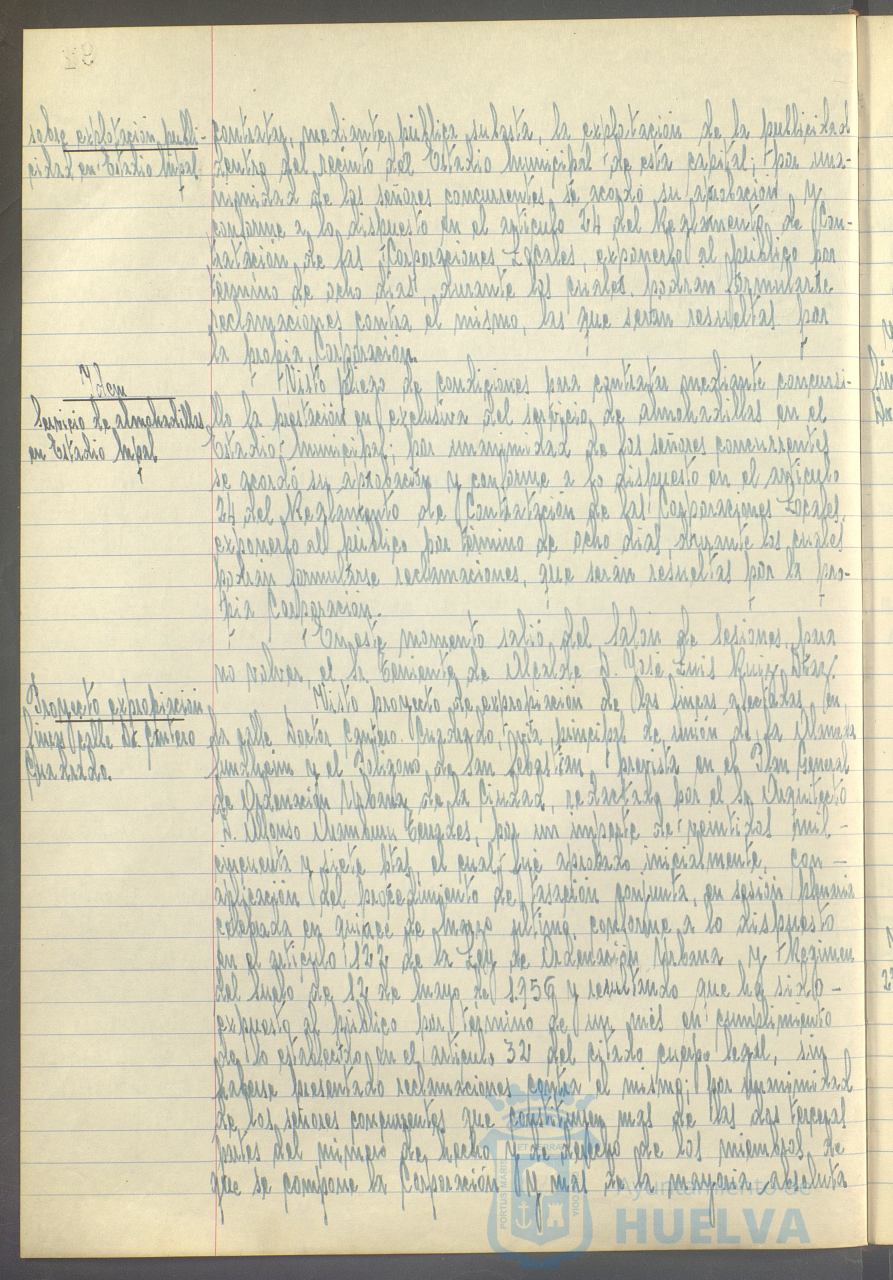 sobre explotación publi-
cidad en Estadio Mpal
contratar, mediante pública subasta, la explotación de la publicidad
dentro del recinto del Estadio Municipal de esta capital; por una-
nimidad de los señores concurrentes se acordó su aprobación y
conforme a lo dispuesto en el artículo 24 del Reglamento de Con-
tratación de las Corporaciones Locales, exponerlo al público por
término de ocho días, durante los cuales podrán formularse
reclamaciones contra el mismo, las que serán resueltas por
la propia Corporación.
Idem
Servicio de almohadillas
en Estadio Mpal
Visto pliego de condiciones para contratar mediante concursi-
llo la prestación en exclusiva del servicio de almohadillas en el
Estadio Municipal; por unanimidad de los señores concurrentes
se acordó su aprobación y conforme a lo dispuesto en el artículo
24 del Reglamento de Contratación de las Corporaciones Locales,
exponerlo al público por término de ocho días, durante los cuales
podrán formularse reclamaciones, que serán resueltas por la pro-
pia Corporación.
En este momento salió del Salón de Sesiones, para
no volver, el Sr. Teniente de Alcalde D. José Luis Ruiz Díaz.
Proyecto expropiación
fincas calle Dr. Cantero
Cuadrado.
Visto proyecto de expropiación de las fincas afectadas en
la calle Doctor Cantero Cuadrado, vía principal de unión de la Alameda
Sundheim y el Polígono de San Sebastián prevista en el Plan General
de Ordenación Urbana de la Ciudad, redactado por el Sr. Arquitecto
D. Alfonso Aramburu Terrades, por un importe de veintidos mil
cincuenta y siete ptas, el cual fué aprobado inicialmente, con
aplicación del procedimiento de tasación conjunta, en sesión plenaria
celebrada en quince de marzo último, conforme a lo dispuesto
en el artículo 122 de la Ley de Ordenación Urbana y Regimen
del Suelo de 12 de mayo de 1956 y resultando que ha sido
expuesto al público por término de un mes en cumplimiento
de lo establecido en el artículo 32 del citado cuerpo legal, sin
haberse presentado reclamaciones contra el mismo; por unanimidad
de los señores concurrentes que constituyen mas de las dos terceras
partes del número de hecho y de derecho de los miembros de
que se compone la Corporación y mas de la mayoria absoluta
Ayuntamiento de
HUELVA